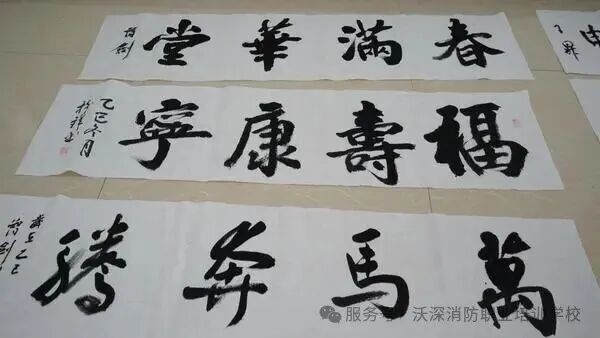 春滿華堂
福壽康寧
乙巳冬月
萬馬奔騰
歲在乙巳
服务号 · 沃深消防职业培训学校